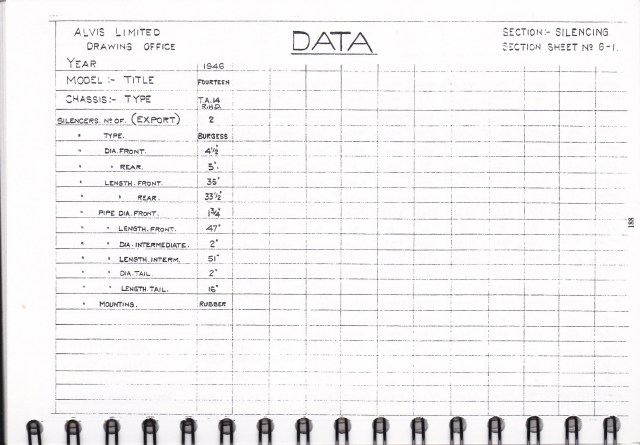 ALVIS LIMITED
DRAWING OFFICE
DATA
SECTION:- SILENCING
SECTION SHEET No 6-1.
YEAR 1946
MODEL:- TITLE FOURTEEN
CHASSIS:- TYPE T.A.14 R.H.D.
SILENCERS. No OF. (EXPORT) 2
" TYPE. BURGESS
" DIA. FRONT. 4½"
" " REAR. 5"
" LENGTH. FRONT. 35"
" " REAR. 33½"
" PIPE DIA. FRONT. 1¾"
" " LENGTH. FRONT. 47"
" " DIA. INTERMEDIATE. 2"
" " LENGTH. INTERM. 51"
" " DIA. TAIL. 2"
" " LENGTH. TAIL. 16"
" MOUNTING. RUBBER
188